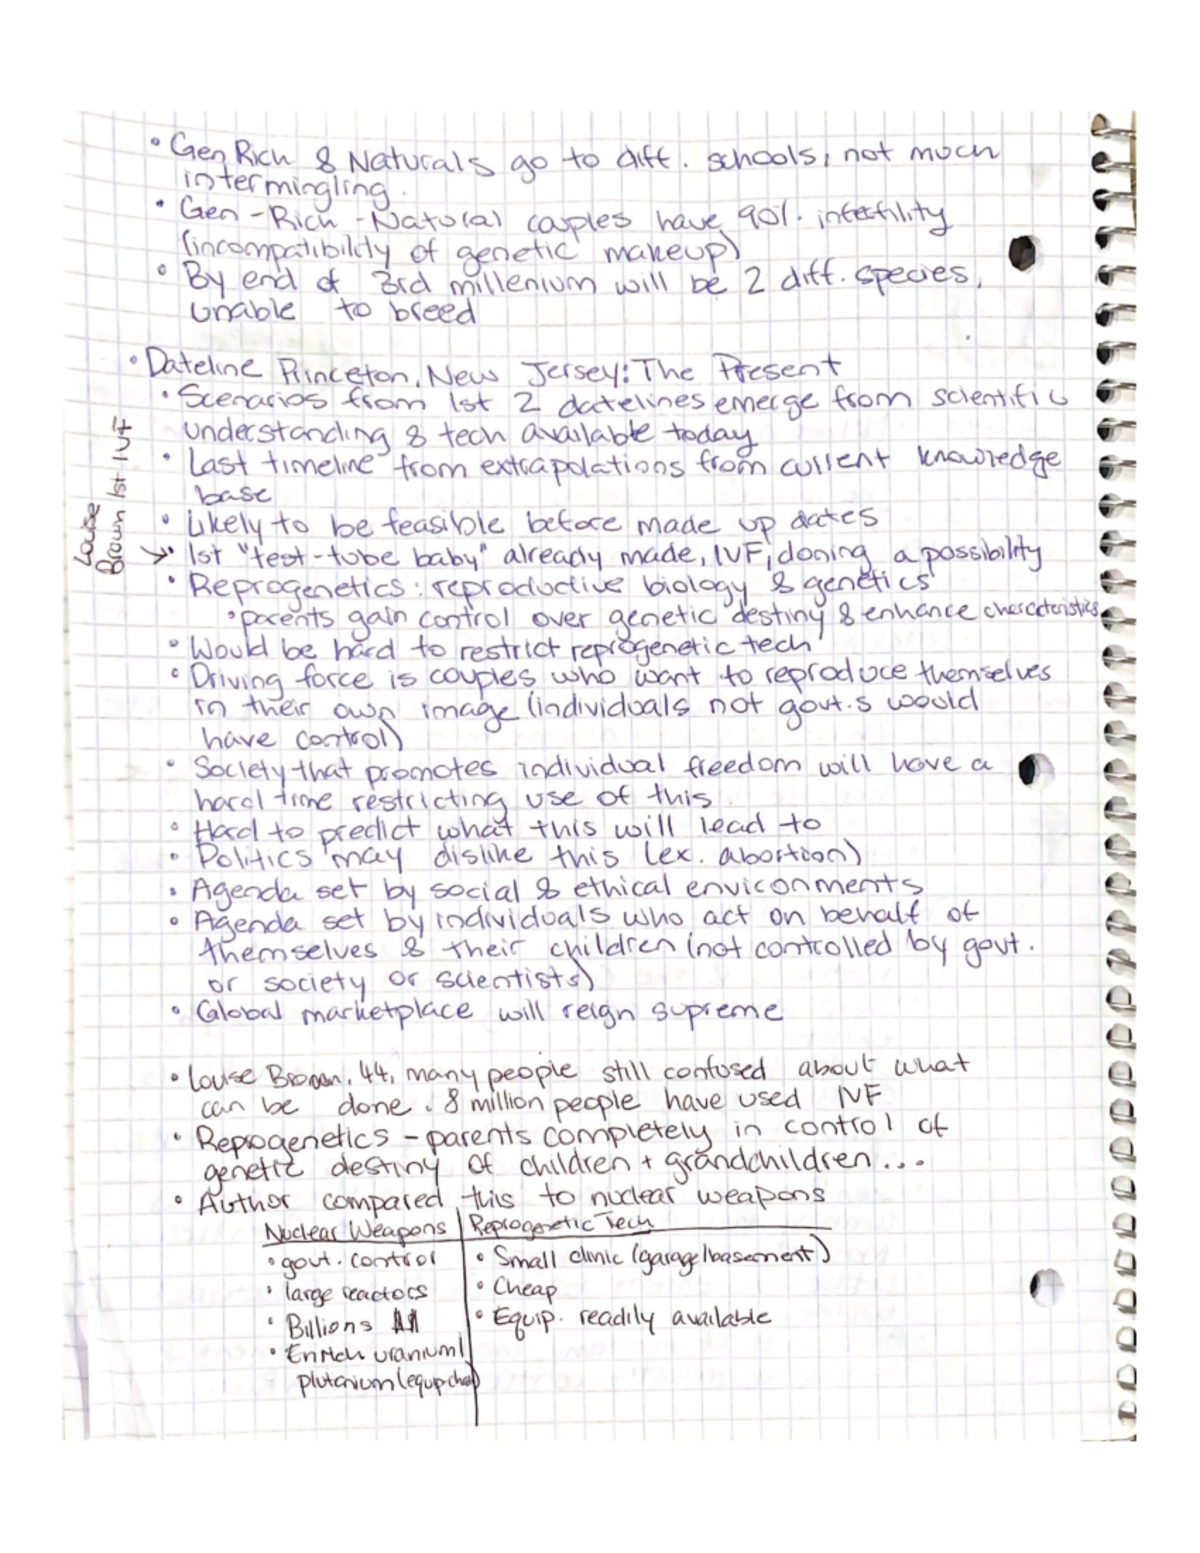 • Gen Rich & Naturals go to diff. schools, not much
intermingling.
• Gen-Rich-Natural couples have 90% infertility
(incompatibility of genetic makeup)
• By end of 3rd millenium will be 2 diff. species,
unable to breed
• Dateline Princeton, New Jersey: The Present
• Scenarios from 1st 2 datelines emerge from scientific
understanding & tech available today
• Last timeline from extrapolations from current knowledge
base
• Likely to be feasible before made up dates
Louise
Brown 1st IVF
→• 1st "test-tube baby" already made, IVF, cloning a possibility
• Reprogenetics: reproductive biology & genetics
• parents gain control over genetic destiny & enhance characteristics
• Would be hard to restrict reprogenetic tech
• Driving force is couples who want to reproduce themselves
in their own image (individuals not govt.s would
have control)
• Society that promotes individual freedom will have a
hard time restricting use of this
• Hard to predict what this will lead to
• Politics may dislike this (ex. abortion)
• Agenda set by social & ethical environments
• Agenda set by individuals who act on behalf of
themselves & their children (not controlled by govt.
or society or scientists)
• Global marketplace will reign supreme
• Louise Brown, 44, many people still confused about what
can be done. 8 million people have used IVF
• Reprogenetics - parents completely in control of
genetic destiny of children + grandchildren...
• Author compared this to nuclear weapons
Nuclear Weapons | Reprogenetic Tech
• govt. control • Small clinic (garage/basement)
• large reactors • Cheap
• Billions $$ • Equip. readily available
• Enrich uranium/
plutonium